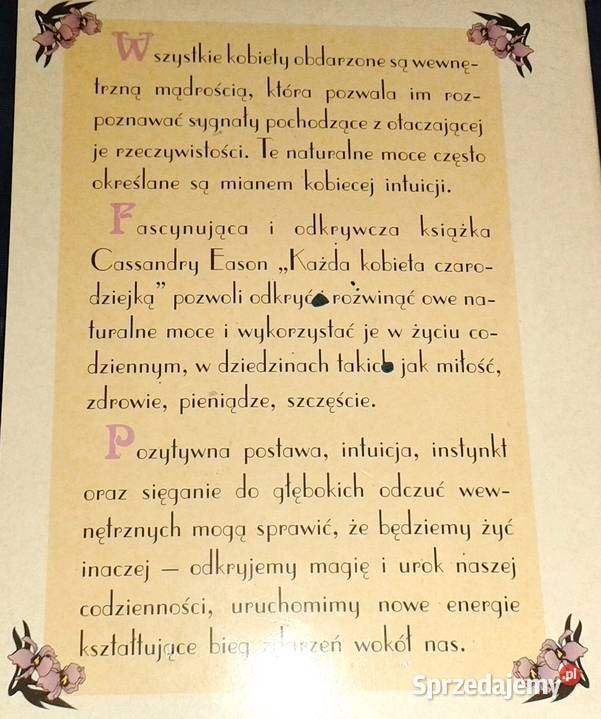 Wszystkie kobiety obdarzone są wewnę-
trzną mądrością, która pozwala im roz-
poznawać sygnały pochodzące z otaczającej
je rzeczywistości. Te naturalne moce często
określane są mianem kobiecej intuicji.
Fascynująca i odkrywcza książka
Cassandry Eason „Każda kobieta czaro-
dziejką” pozwoli odkryć rozwinąć owe na-
turalne moce i wykorzystać je w życiu co-
dziennym, w dziedzinach takich jak miłość,
zdrowie, pieniądze, szczęście.
Pozytywna postawa, intuicja, instynkt
oraz sięganie do głębokich odczuć wew-
nętrznych mogą sprawić, że będziemy żyć
inaczej — odkryjemy magię i urok naszej
codzienności, uruchomimy nowe energie
kształtujące bieg zdarzeń wokół nas.
Sprzedajemy.pl